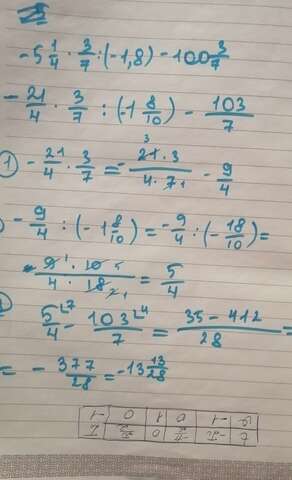 -5 1/4 · 3/7 : (-1,8) - 100 3/7
- 21/4 · 3/7 : (-1 8/10) - 103/7
1) - 21/4 · 3/7 = - 21 3 · 3 / 4 · 7 1 - 9/4
- 9/4 : (-1 8/10) = - 9/4 : (- 18/10) =
9 1 · 10 5 / 4 · 18 2 1 = 5/4
5/4 ∟7 - 103/7 ∟4 = 35 - 412 / 28 =
= - 377/28 = -13 13/28